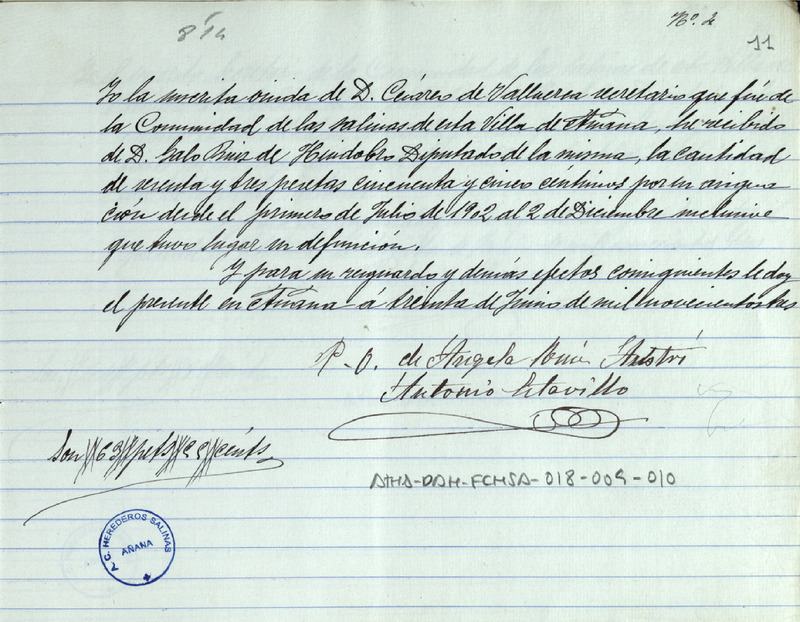 Nº. 2
11
8 14
Yo la inscrita viuda de D. Césareo de Valluerca secretario que fué de
la Comunidad de las salinas de esta Villa de Añana, he recibido
de D. Galo Ruiz de Huidobro Diputado de la misma, la cantidad
de sesenta y tres pesetas cincuenta y cinco céntimos por su asigna
ción desde el primero de Julio de 1902 al 2 de Diciembre inclusive
que tuvo lugar su defunción.
Y para su resguardo y demás efectos consiguientes le doy
el presente en Añana á treinta de Junio de mil novecientos tres
P. O. de Angela
Antonio Estavillo
Son 63 pets 55 cénts
ATHA-DAH-FCHSA-018-009-010
C. HEREDEROS SALINAS
AÑANA